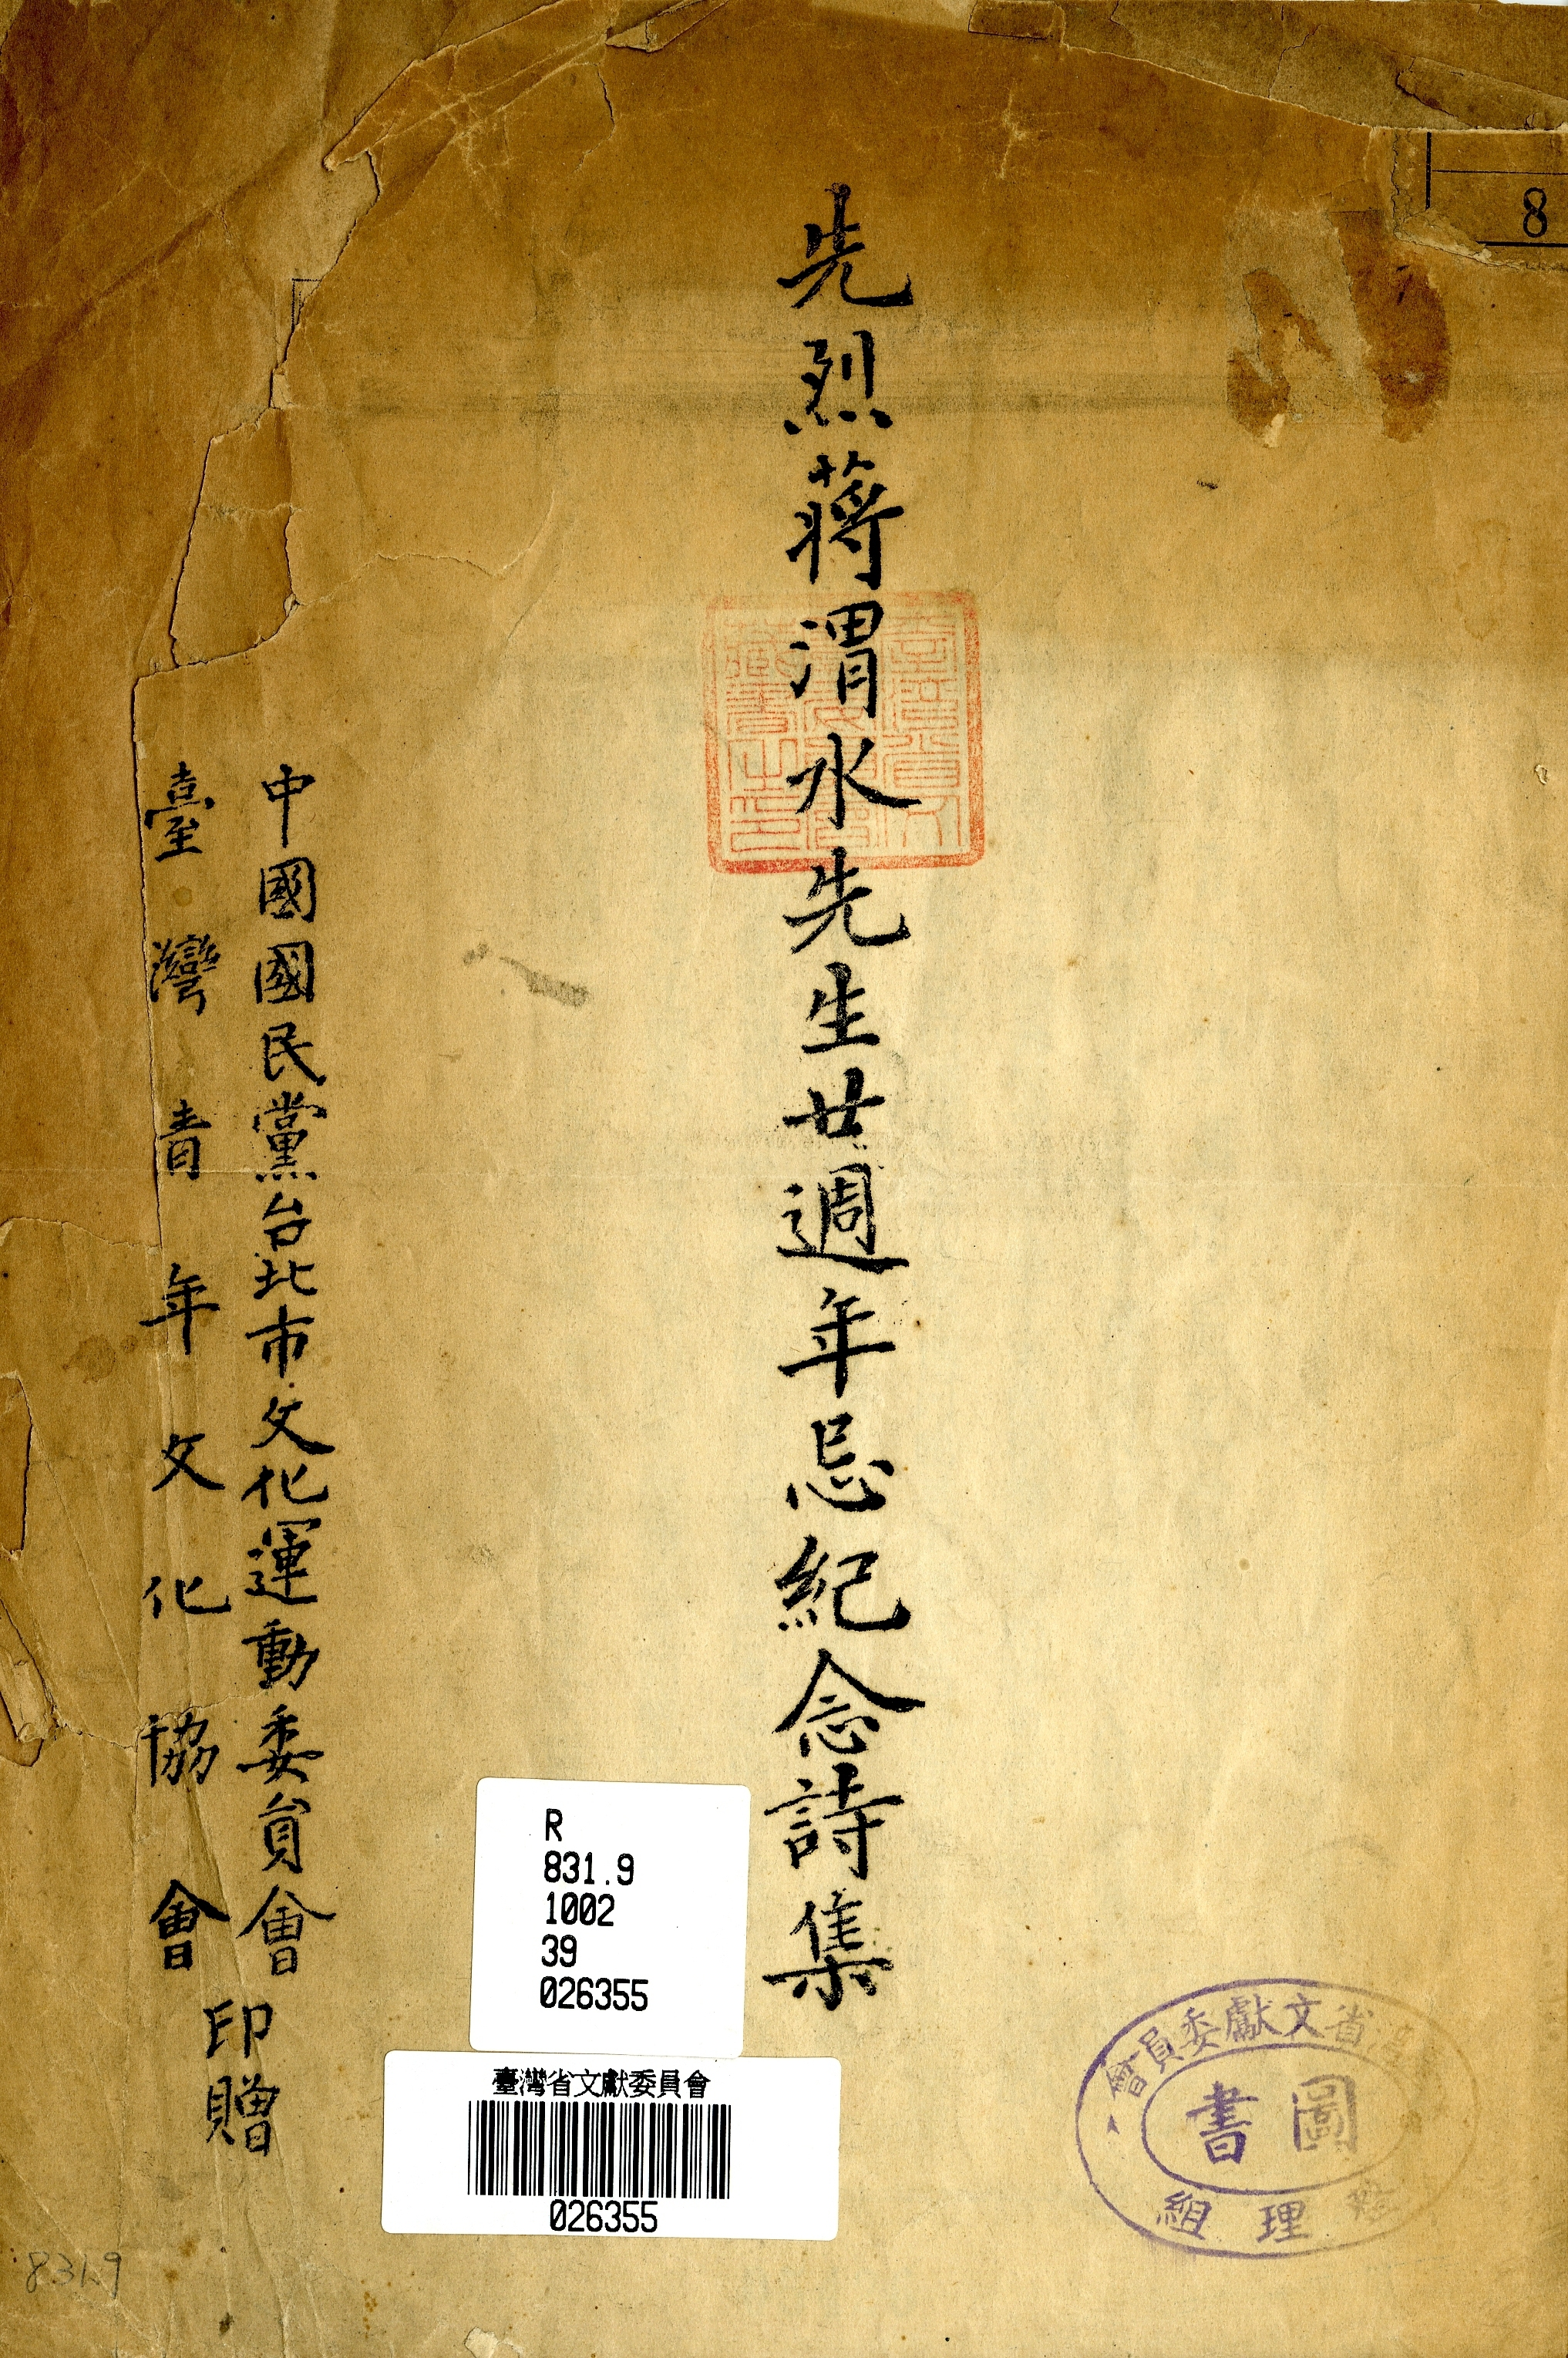 8
先烈蔣渭水先生廿週年忌紀念詩集
臺灣省文獻委員會藏書之印
中國國民黨台北市文化運動委員會
臺灣青年文化協會
印贈
R
831.9
1002
39
026355
臺灣省文獻委員會
026355
省文獻委員會
圖書
理組
831.9